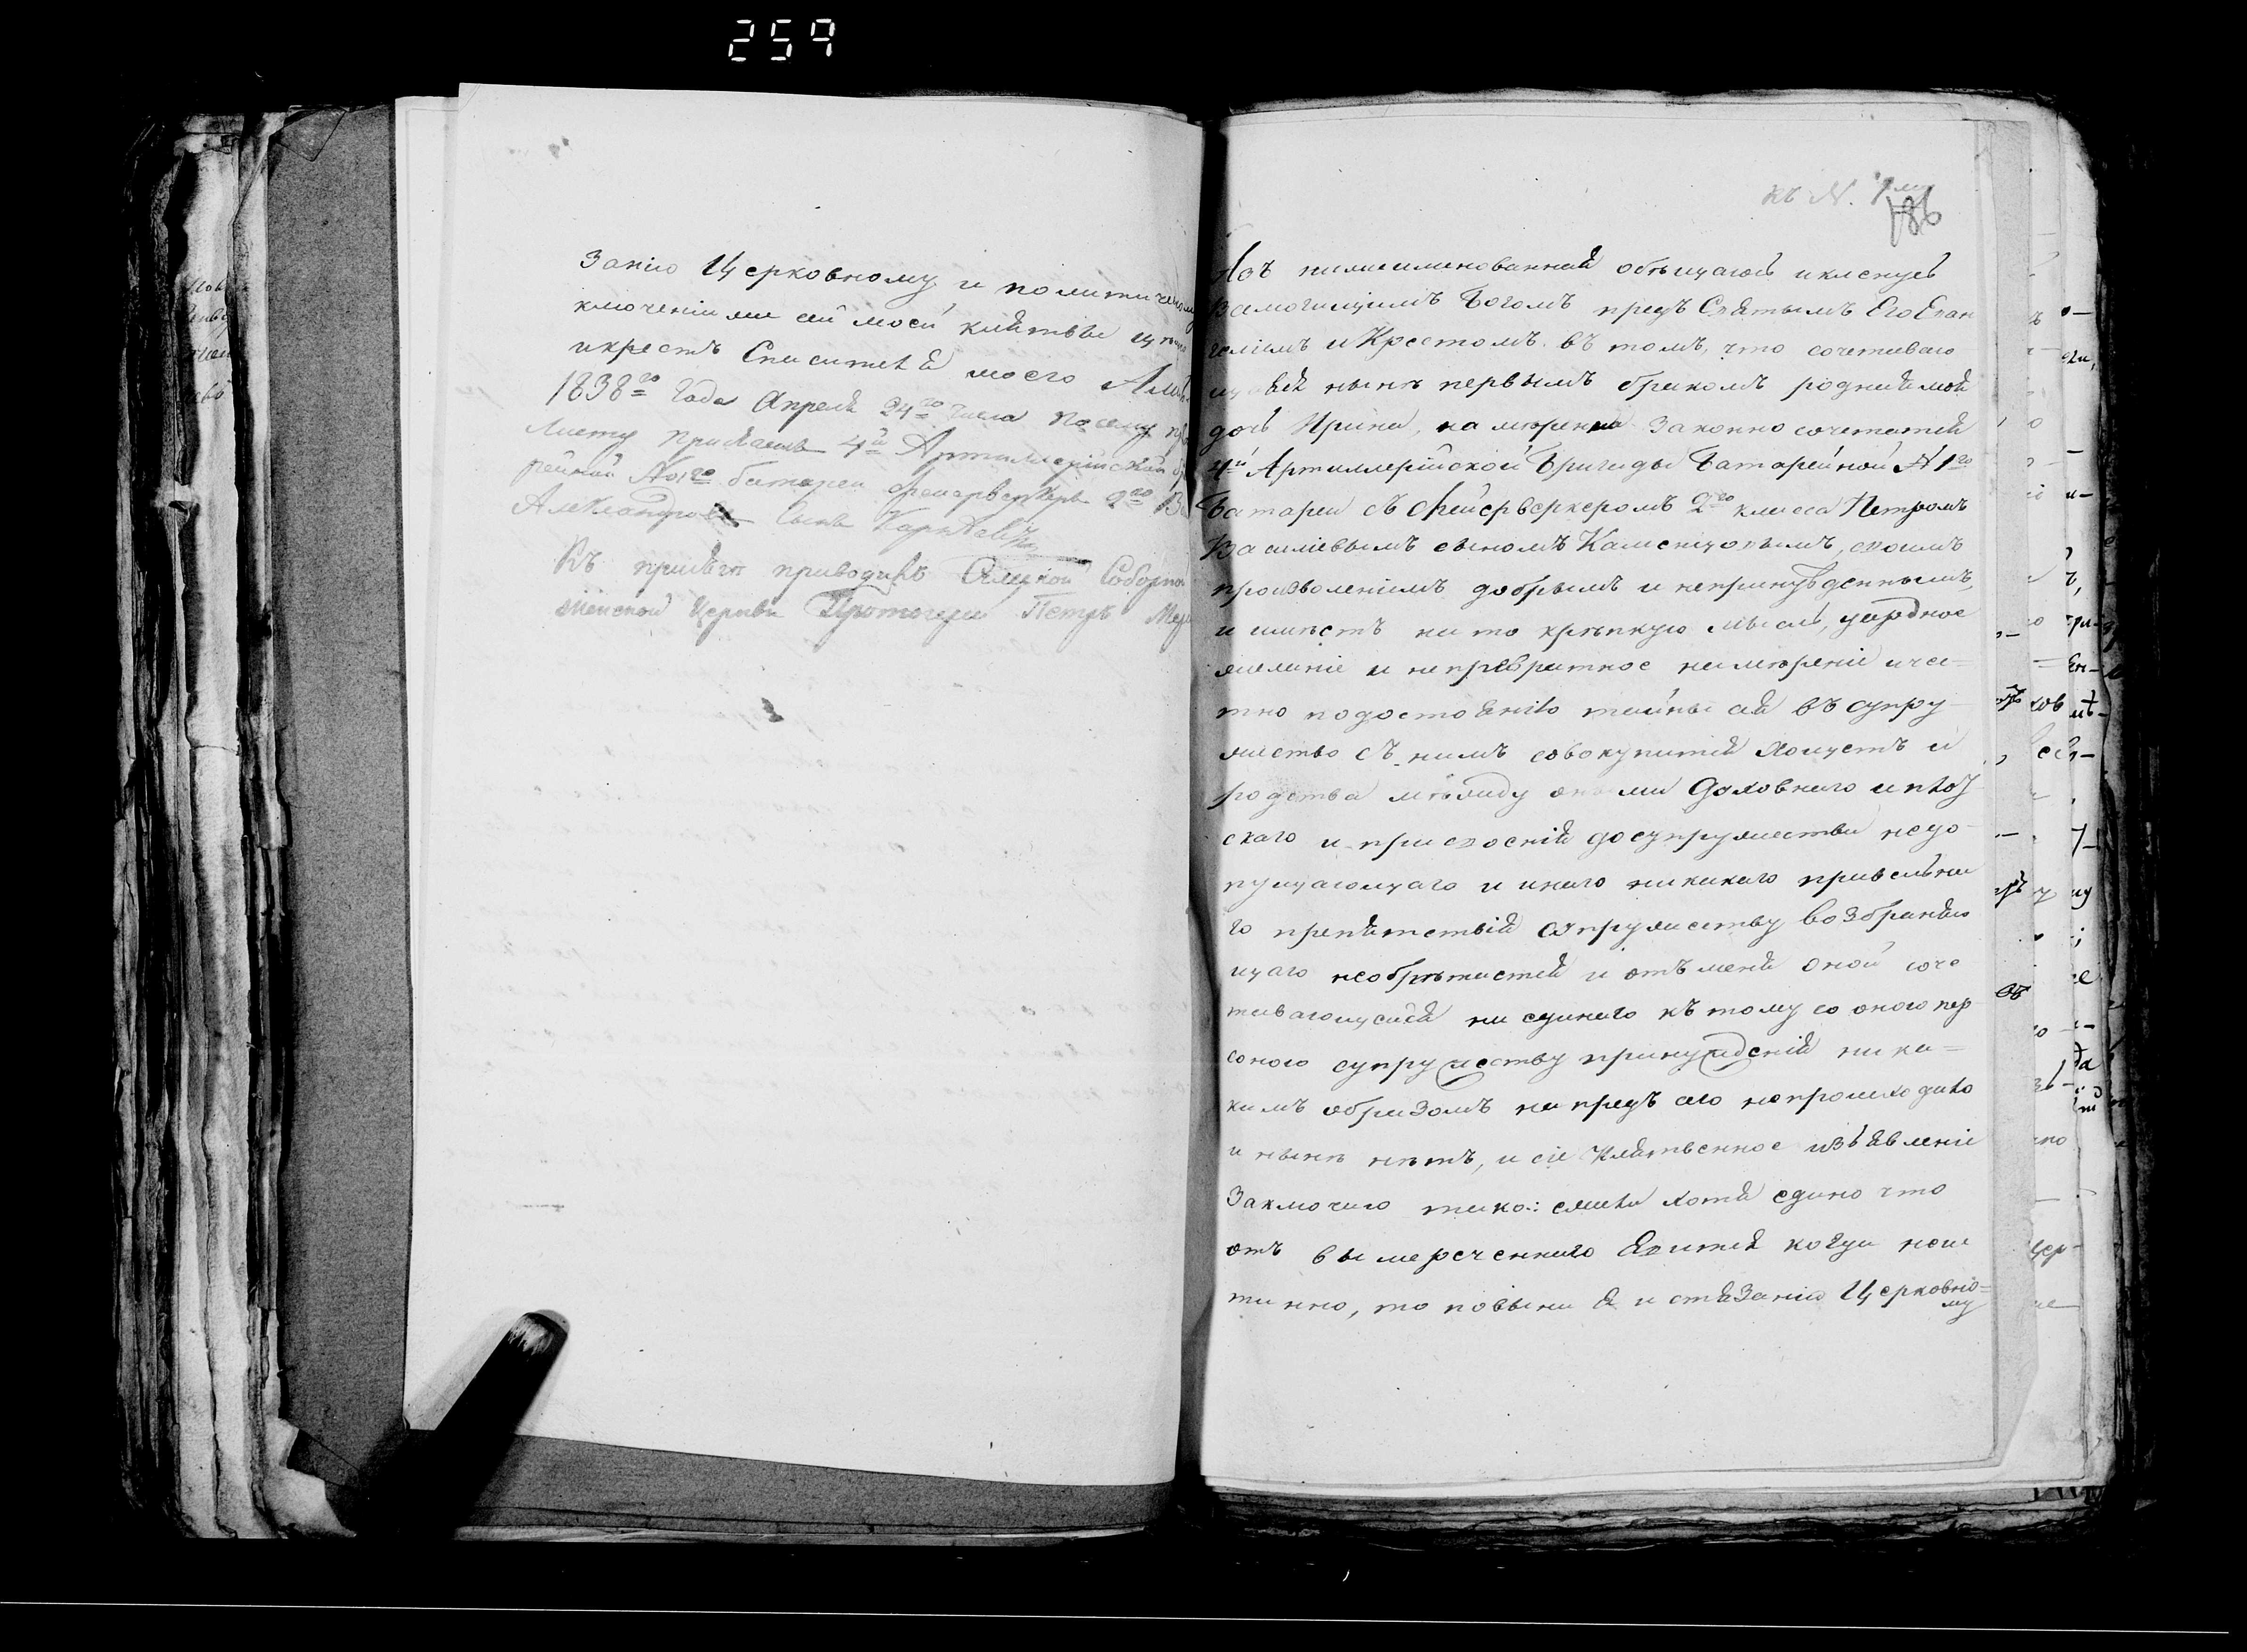 259
занію Церковному и политическому
ключеніи же сей моей клятвы цѣлую
и крестъ Спасителя моего Аминь
1838го года Апреля 24го числа По сему
листу Присягалъ 4й Артиллерійской
рейной No 1го батареи фейерверкеръ 2го
Александро сынъ
Къ присягѣ приводилъ Соборной
Церкви Протоіерей Петръ
къ N. 7му
186
Азъ нижеименованный обѣщаюсь и кленусь
Всемогущимъ Богомъ предъ Святымъ Его Еван
геліемъ и Крестомъ въ томъ, что сочетаваю
щаяся нынѣ первымъ бракомъ родная моя
дочь Ирина, намѣренна законно сочетатся
4й Артиллерійской Бригады Батарейной N 1го
Батареи съ Фейерверкеромъ 2го класса Петромъ
Василіевымъ сыномъ Каменцовымъ, своимъ
произволеніемъ добрымъ и непринужденнымъ,
и имѣетъ на то крѣпкую мысль, усердное
желаніе и непревратное намѣреніе и че=
тно по достоянію тайны сея въ супру
жество съ нимъ совокупится хощетъ и
родства между ими Духовнаго и плот
скаго и присвоенія до супружества недо
пущающаго и инаго никакаго правильна
го препятствія супружеству возбраняю
щаго необрѣтается и отъ меня оной соче
тавающейся ни единаго къ тому со оною пер
соною супружеству принужденія ника=
кимъ образомъ на предъ сего непроисходило
и нынѣ нѣтъ, и сіе клятвенное изъявленіе
Заключаю тако: ежели хотя едино что
отъ вышереченнаго явится когда неис
тинно, то повинна я истязанію Церковно=
му